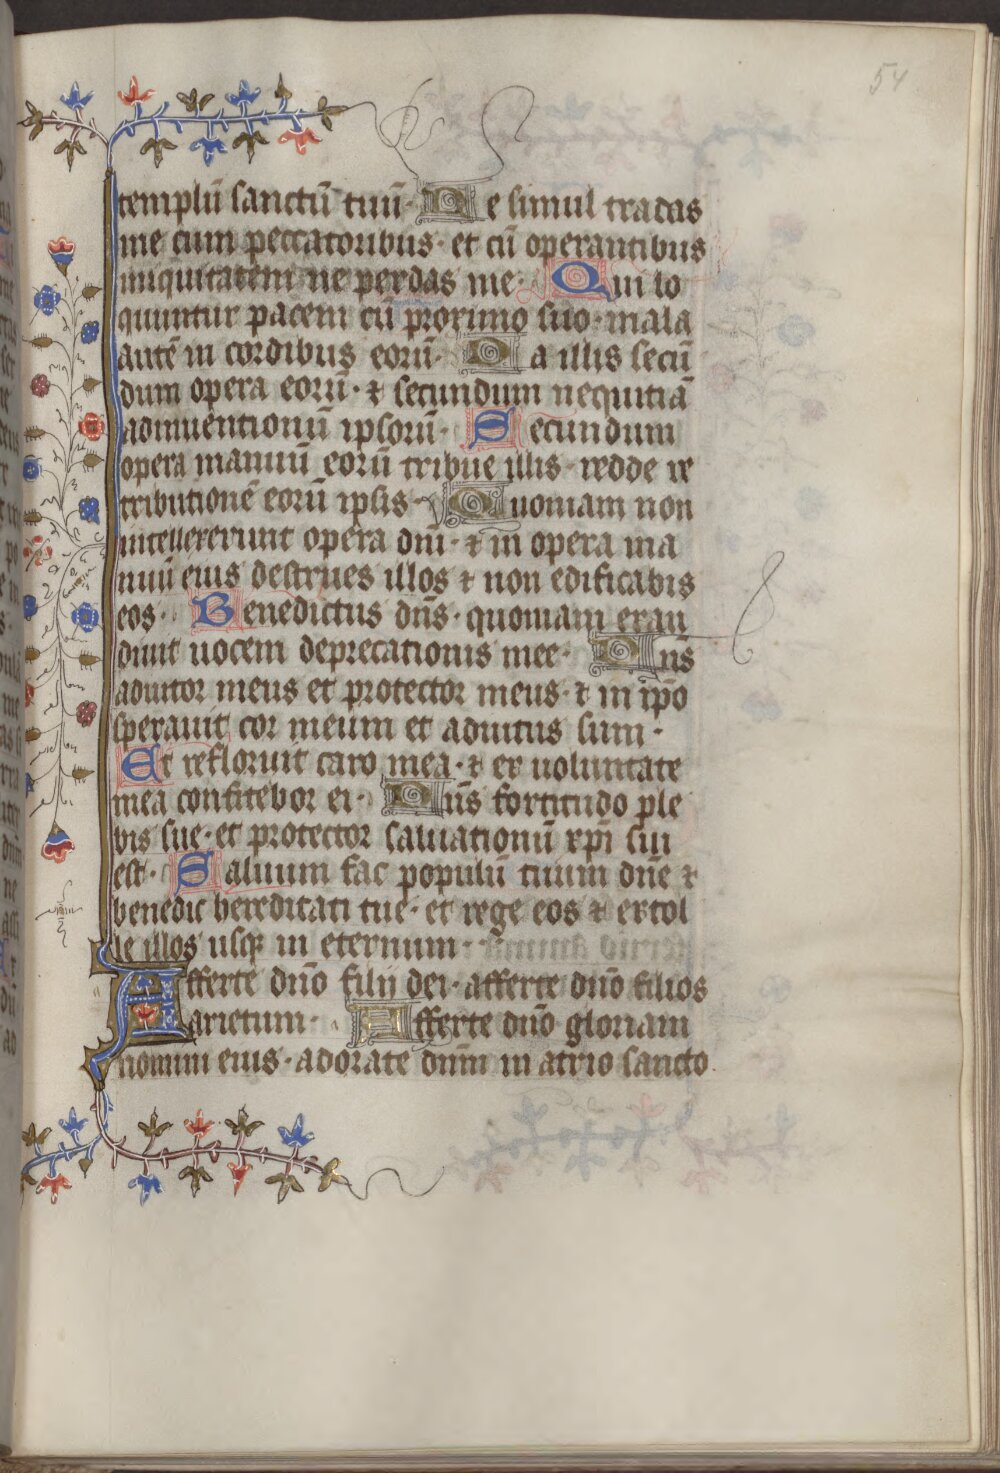 54
templū sanctū tuū · Ne simul tradas
me cum peccatoribus · et cū operantibus
iniquitatem ne perdas me · Qui lo
quuntur pacem cū proximo suo · mala
autē in cordibus eorū · Da illis secū
dum opera eorū · ⁊ secundum nequitiā
adinuentionū ipsorū · Secundum
opera manuū eorū tribue illis · redde re
tributionē eorū ipsis · Quoniam non
intellexerunt opera dn̄i · ⁊ in opera ma
nuū eius destrues illos ⁊ non edificabis
eos · Benedictus dn̄s · quoniam exau
diuit uocem deprecationis mee · Dn̄s
adiutor meus et protector meus · ⁊ in ip̄o
sperauit cor meum et adiutus sum ·
Et refloruit caro mea · ⁊ ex uoluntate
mea confitebor ei · Dn̄s fortitudo ple
bis sue · et protector saluationū xp̄i sui
est · Saluum fac populū tuum dn̄e ⁊
benedic hereditati tue · et rege eos ⁊ extol
le illos usqꝫ in eternum ·
Afferte dn̄o filij dei · afferte dn̄o filios
arietum · Afferte dn̄o gloriam
nomini eius · adorate dn̄m in atrio sancto